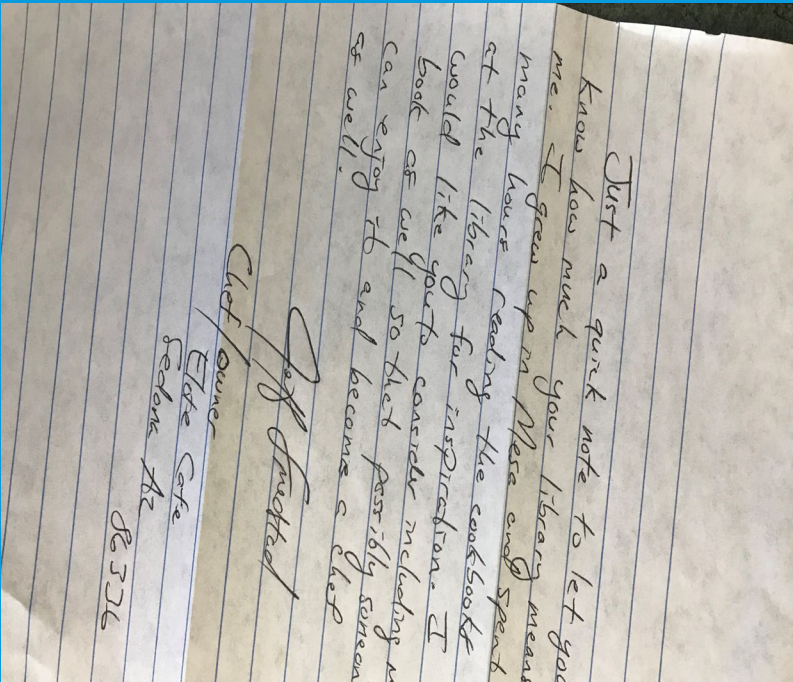 Just a quick note to let you
know how much your library means
me. I grew up in Mesa and spent
many hours reading the cookbooks
at the library for inspiration. I
would like you to consider including m
book as well so that possibly someon
can enjoy it and become a chef
as well.
Jeff Smedstad
Chef/owner
Elote Cafe
Sedona AZ
86336